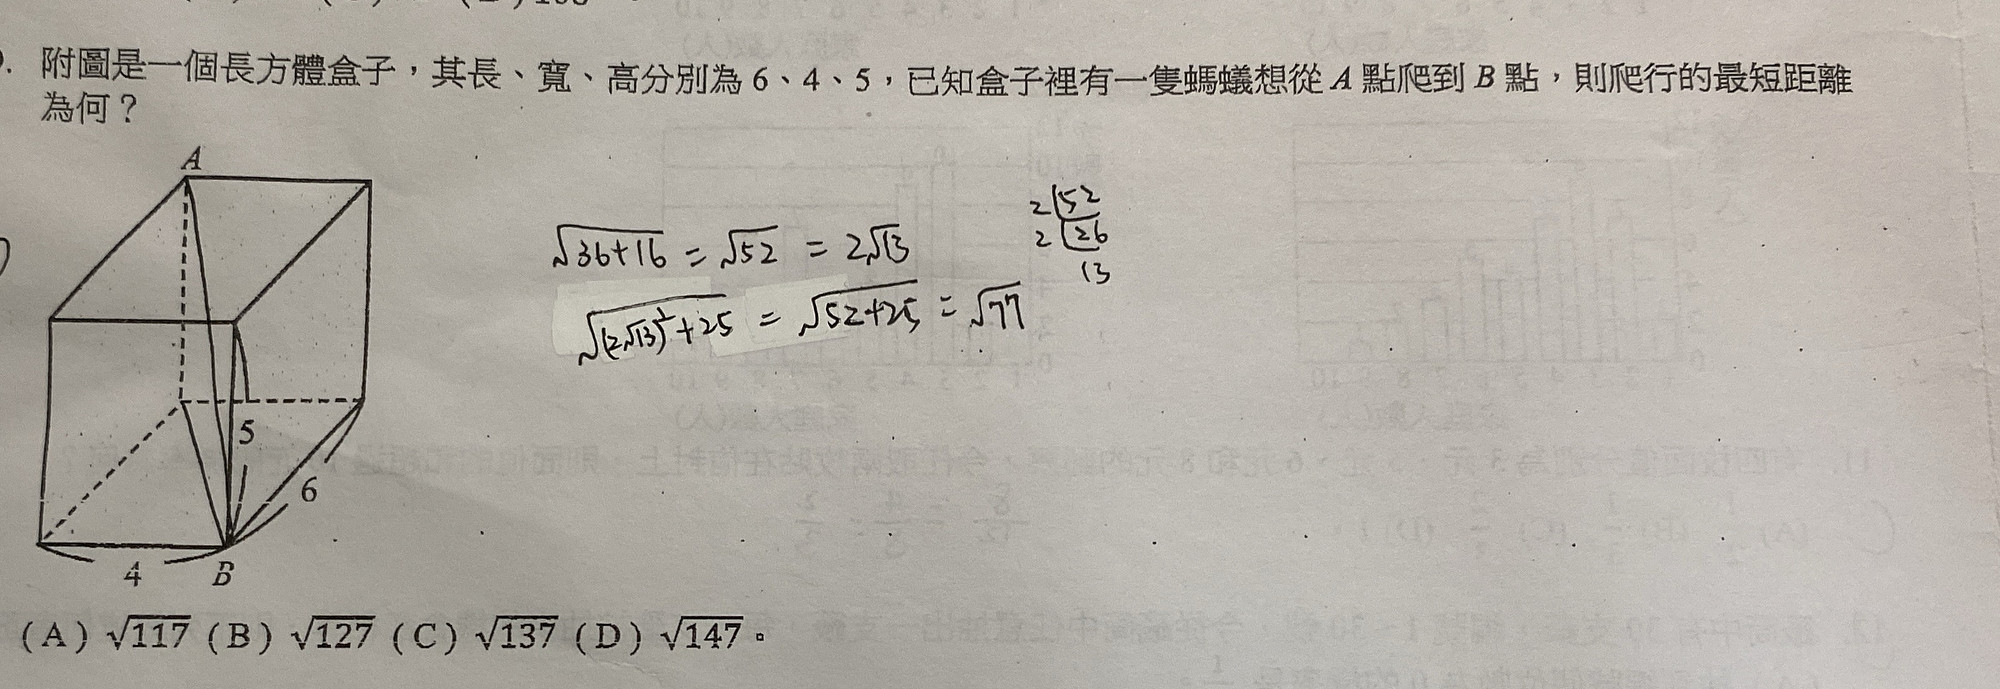 附圖是一個長方體盒子，其長、寬、高分別為 6、4、5，已知盒子裡有一隻螞蟻想從 A 點爬到 B 點，則爬行的最短距離
為何？
A
√36+16 = √52 = 2√13
2 52
2 26
13
√(2√13)²+25 = √52+25 = √77
5
6
4
B
(A) √117 (B) √127 (C) √137 (D) √147。